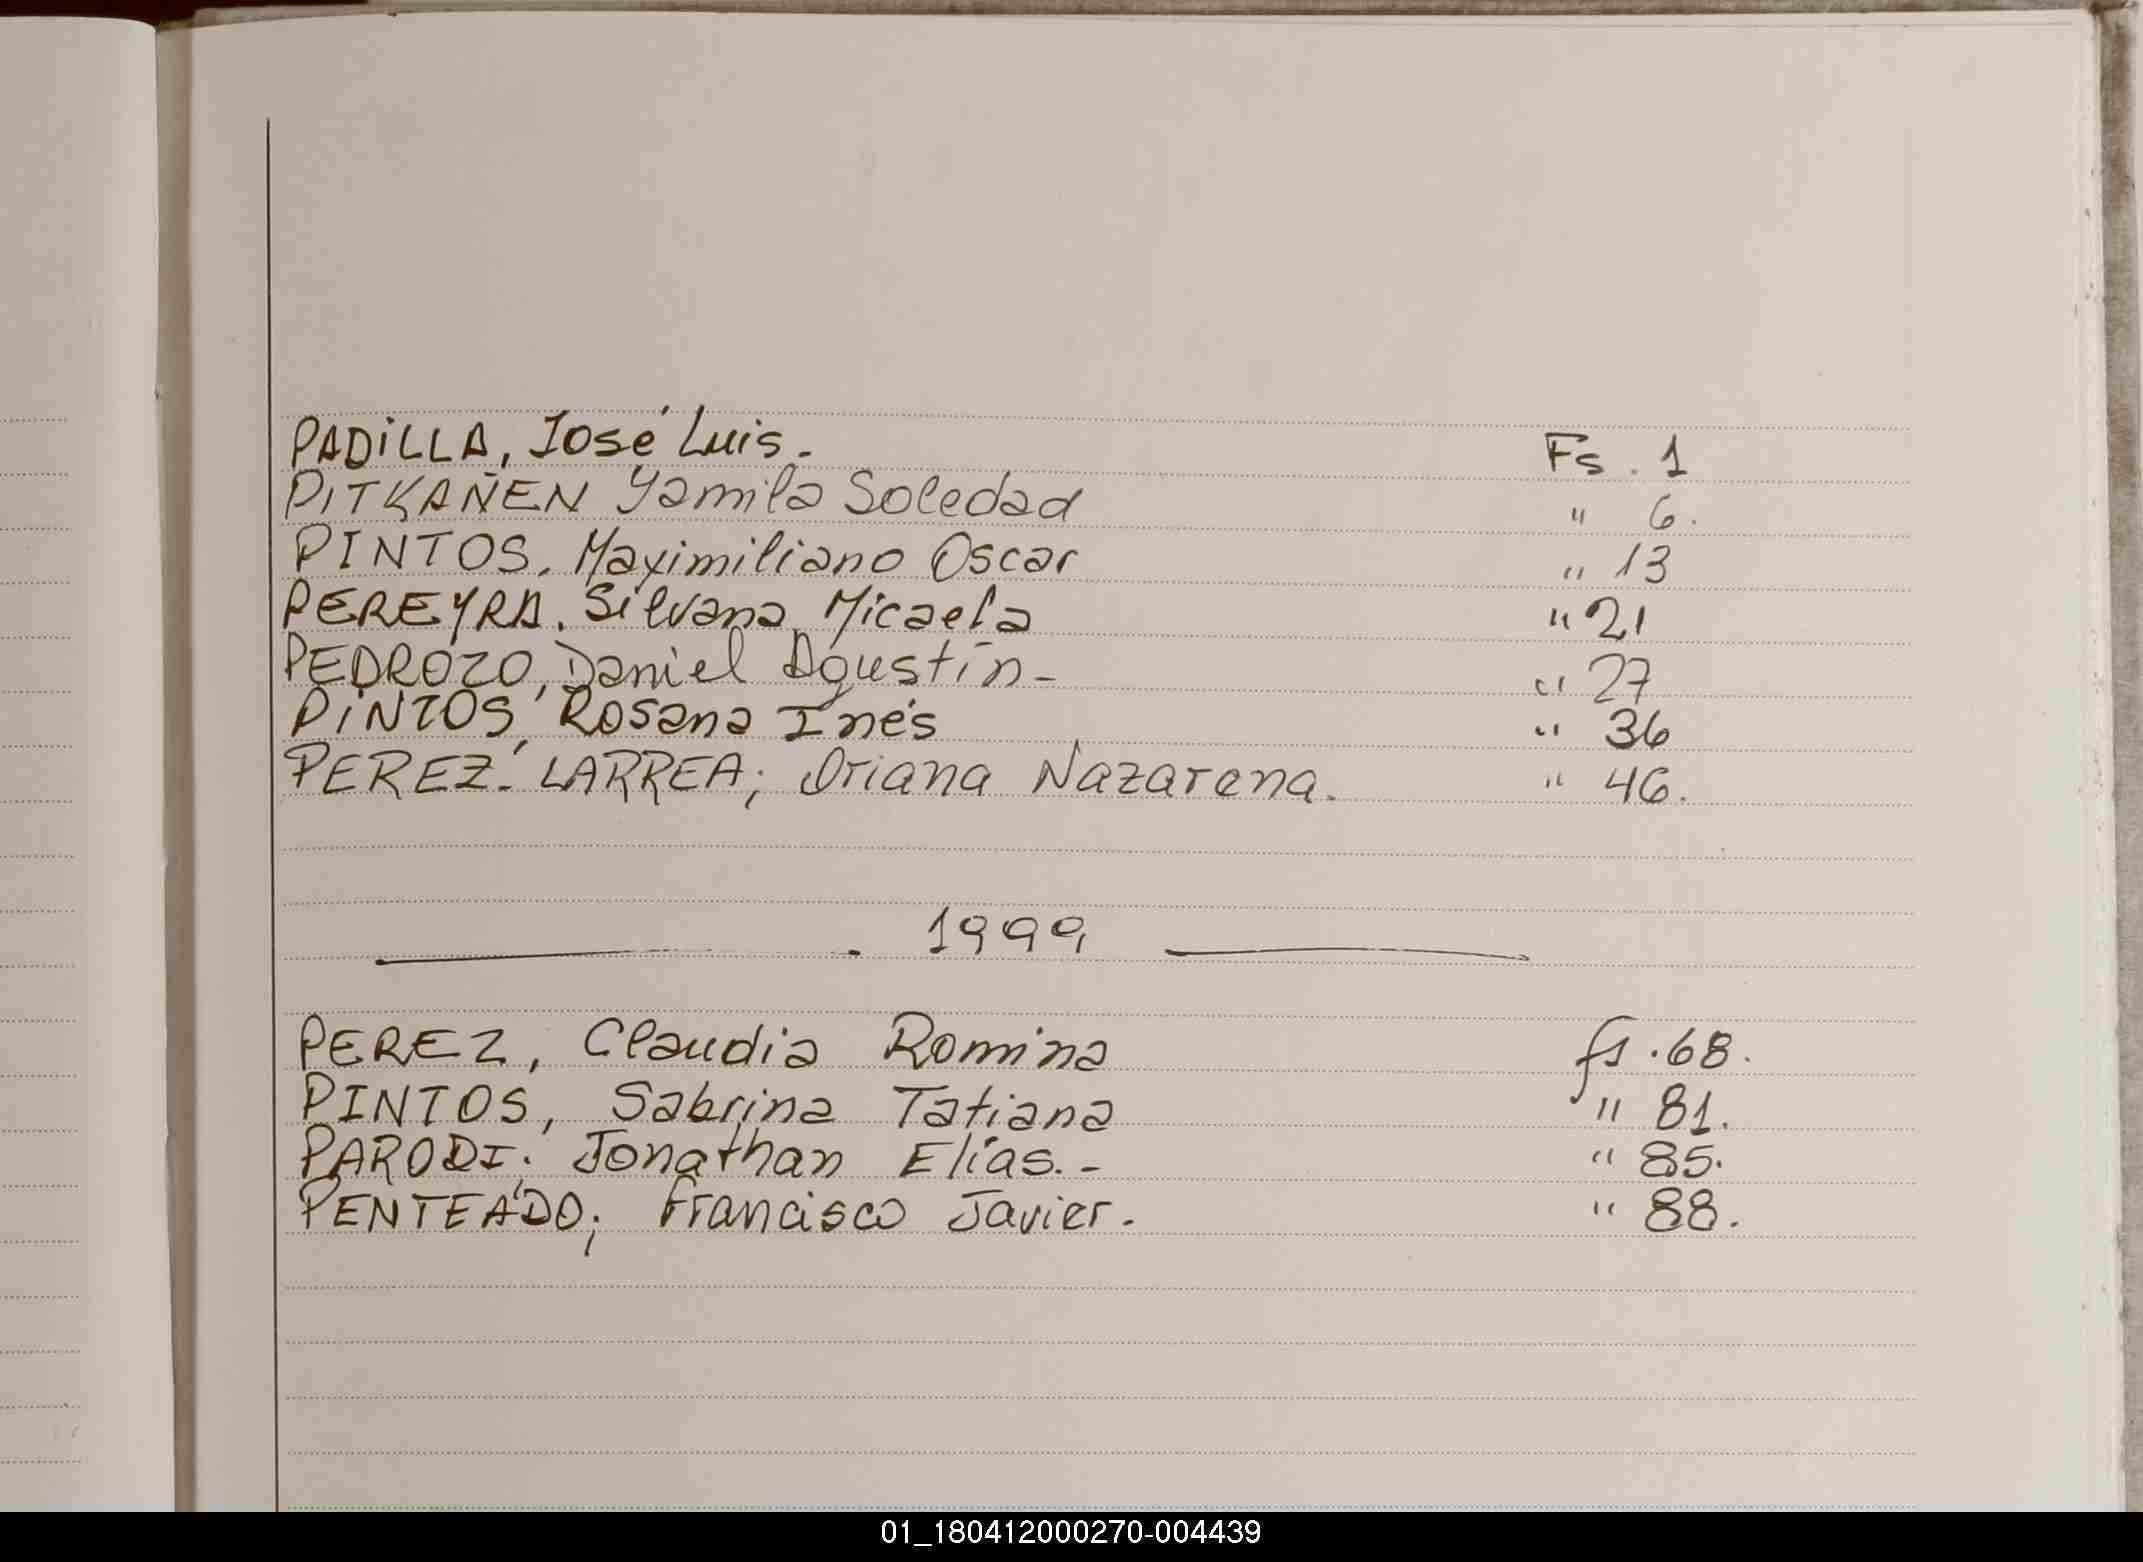 PADILLA, José Luis. Fs. 1
PITKAÑEN Yamila Soledad " 6.
PINTOS. Maximiliano Oscar " 13
PEREYRA. Silvana Micaela " 21
PEDROZO, Daniel Agustín- " 27
PINTOS, Rosana Inés " 36
PEREZ- LARREA; Oriana Nazarena. " 46.
1999
PEREZ, Claudia Romina fs. 68.
PINTOS, Sabrina Tatiana " 81.
PARODI. Jonathan Elías.- " 85.
PENTEADO; Francisco Javier. " 88.
01_180412000270-004439